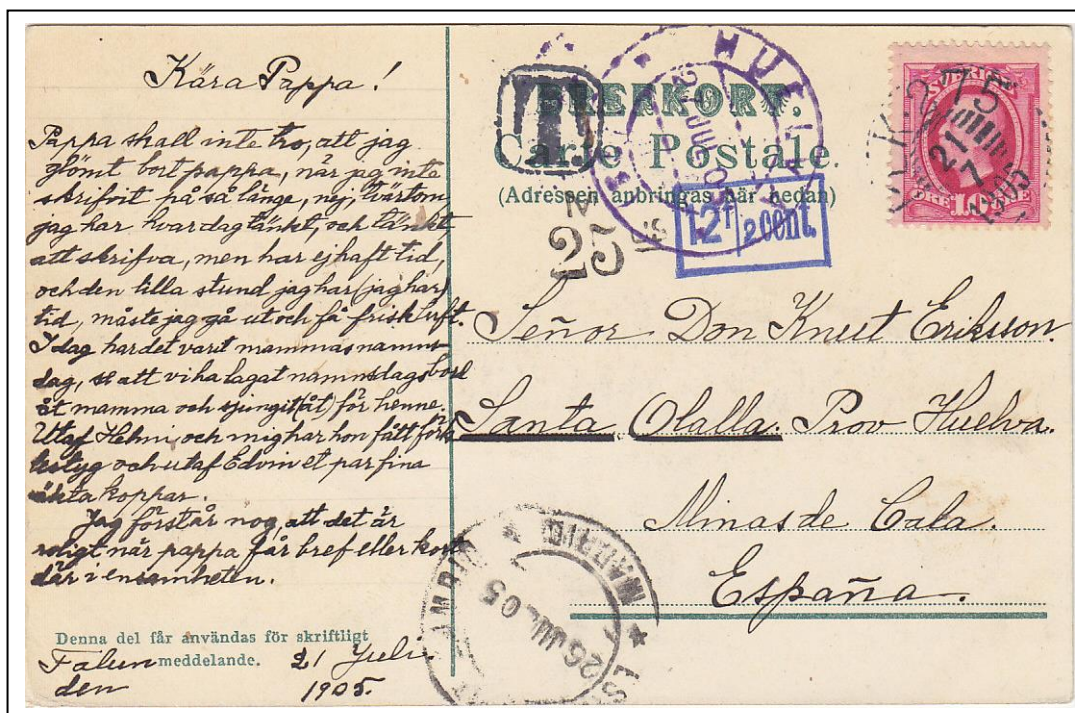 Kära Pappa!
Pappa skall inte tro, att jag
glömt bort pappa, när jag inte
skrifvit på så länge, nej, tvärtom
jag har hvar dag tänkt, och tänkt
att skrifva, men har ej haft tid,
och den lilla stund jag har (jag har)
tid, måste jag gå ut och få frisk luft.
I dag har det varit mammas namns-
dag, så att vi ha lagat namnsdagsbord
åt mamma och sjungit (åt) för henne.
Utaf Helmi och mig har hon fått
och utaf Edvin et par fina
äkta koppar.
Jag förstår nog, att det är
roligt när pappa får bref eller kort
där i ensamheten.
Denna del får användas för skriftligt
meddelande.
Falun 21 Juli
den 1905.
BREFKORT.
Carte Postale
(Adressen anbringas här nedan)
T
25
HUELVA
12 1/2 cent.
SVERIGE
10 ÖRE
PKXP 275
21
7
1905
Señor Don Knut Eriksson.
Santa Olalla. Prov Huelva.
Minas de Cala.
España.
MADRID
26 JUL 05